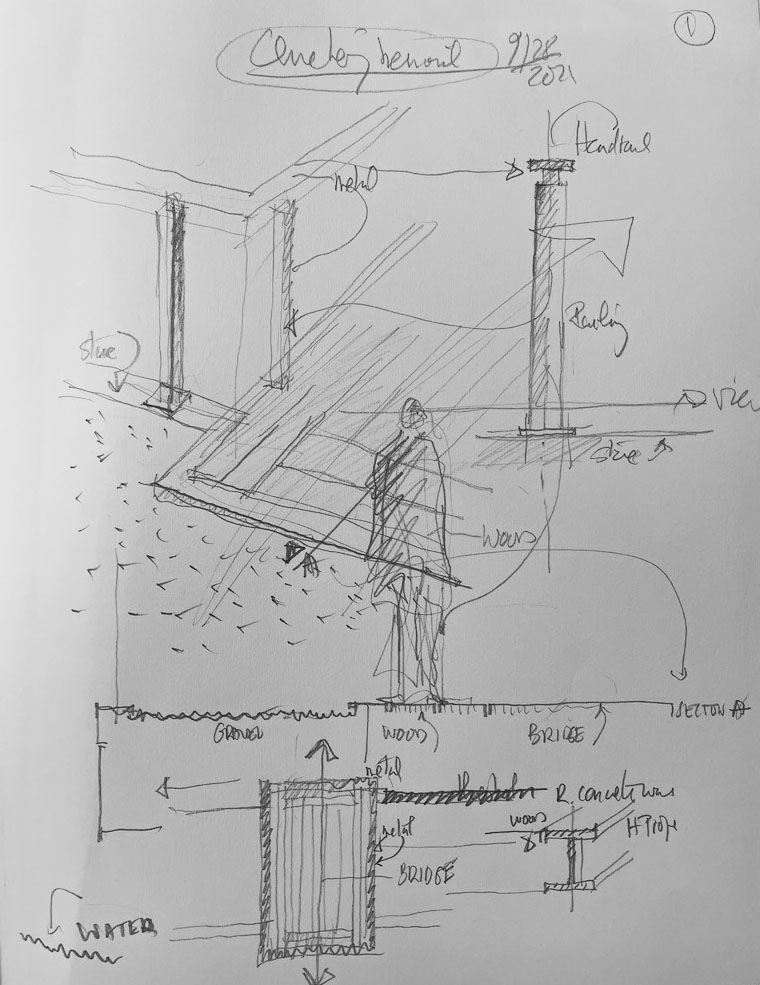 1
9/28
2021
Handrail
metal
Railing
Stone
View
Stone
WOOD
A
SECTION A
GRAVEL
WOOD
BRIDGE
metal
R. concrete
wood
metal
BRIDGE
WATER